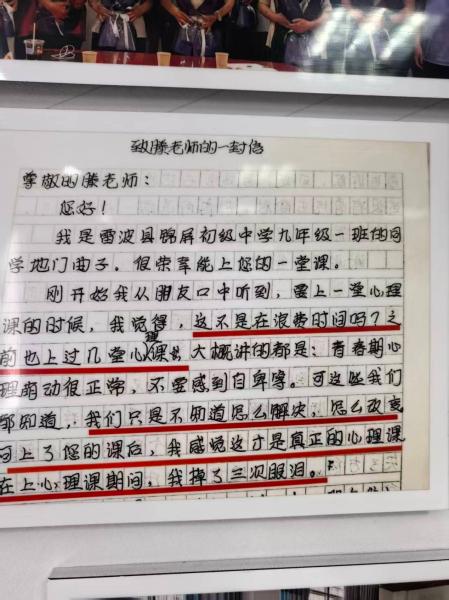 致滕老师的一封信
尊敬的滕老师：
您好！
我是雷波县锦屏初级中学九年级一班的同
学地门曲子。很荣幸能上您的一堂课。
刚开始我从朋友口中听到，要上一堂心理
课的时候，我觉得，这不是在浪费时间吗？之
前也上过几堂心理课，大概讲的都是：青春期心
理萌动很正常，不要感到自卑等。可这些我们
都知道，我们只是不知道怎么解决，怎么改变
可上了您的课后，我感觉这才是真正的心理课
在上心理课期间，我掉了三次眼泪。